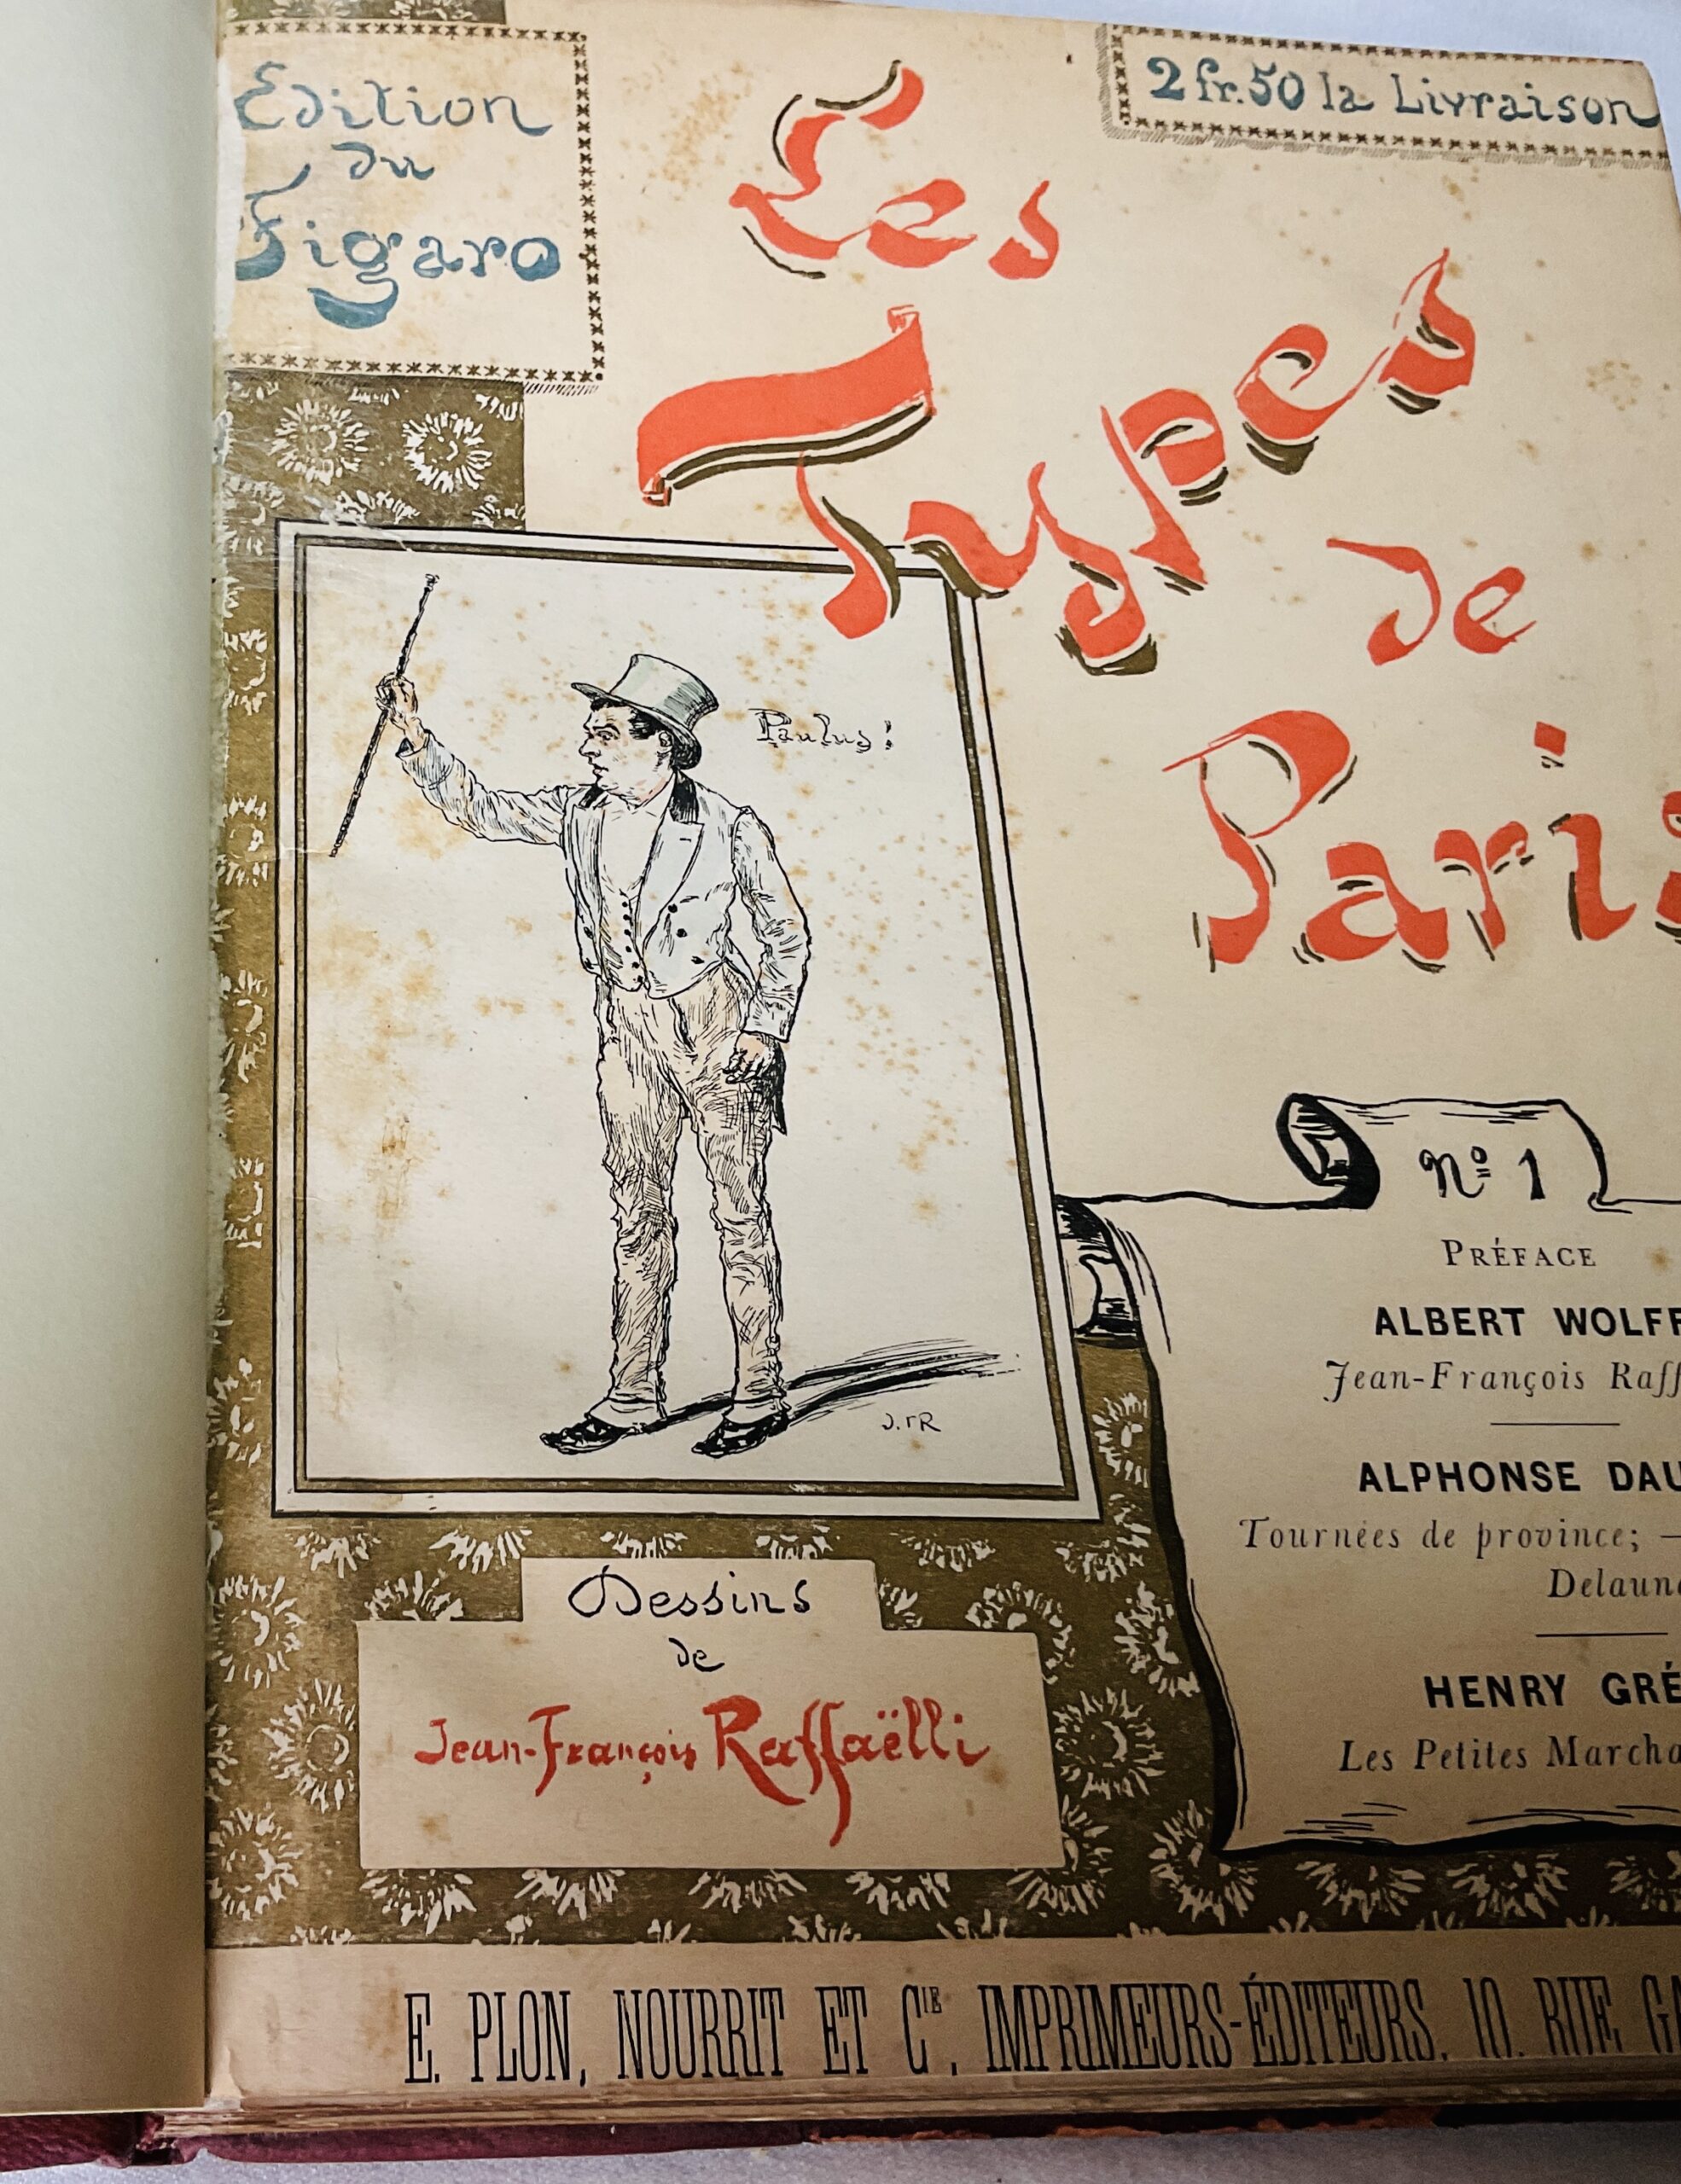 Edition
du
Figaro
2 fr. 50 la Livraison
Les
Types
de
Paris
Paulus!
J.F.R
Nº 1
PRÉFACE
ALBERT WOLFF
Jean-François Raff
ALPHONSE DAU
Tournées de province; —
Delaun
HENRY GRÉ
Les Petites Marcha
Dessins
de
Jean-François Raffaëlli
E. PLON, NOURRIT ET CIE, IMPRIMEURS-ÉDITEURS, 10, RUE GA